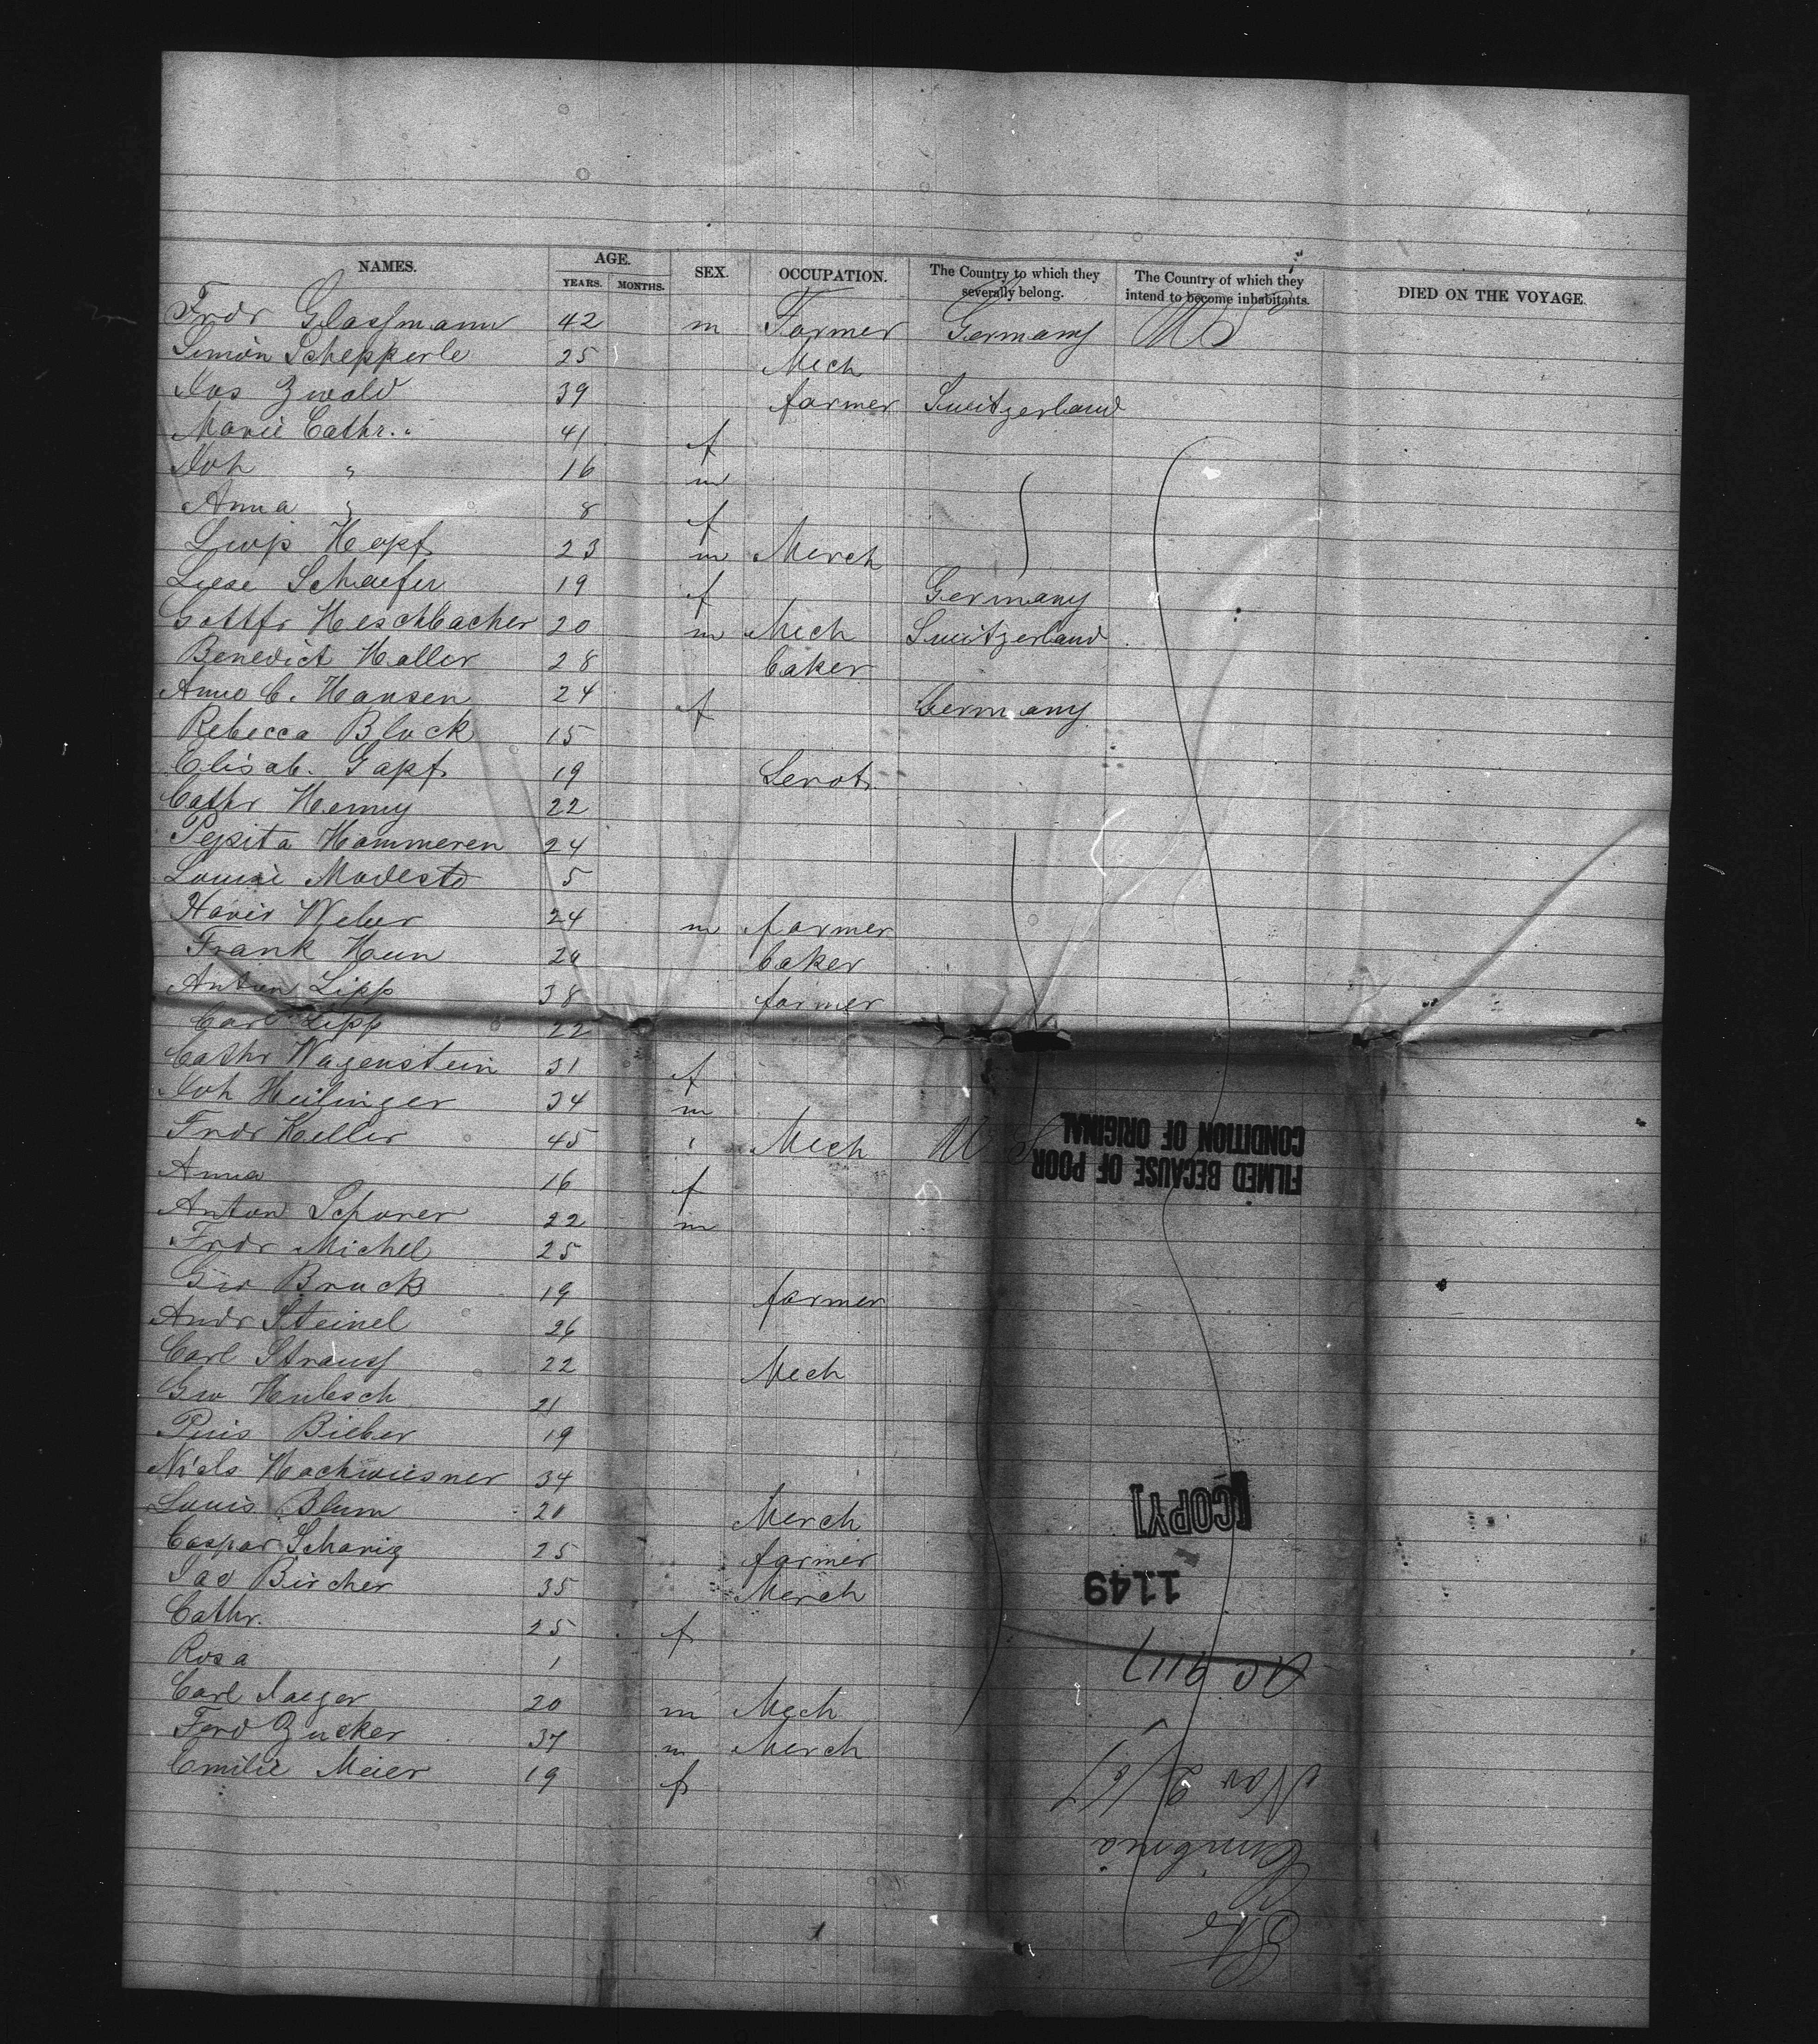 NAMES. AGE. YEARS. MONTHS. SEX. OCCUPATION. The Country to which they severally belong. The Country of which they intend to become inhabitants. DIED ON THE VOYAGE.
Fredr Glassmann 42 m Farmer Germany US
Simon Schepperle 25 Mech
Jos Zwald 39 farmer Switzerland
Marie Cathr. " 41 f
Joh " 16 m
Anna " 8 f
Leop Hopf 23 m Merch
Liese Schaefer 19 f Germany
Gottfr Heschbacher 20 m Mech Switzerland
Benedict Haller 28 baker
Anna C. Hansen 24 f Germany
Rebecca Block 15
Elisab. Gapf 19 Servt
Cathr Henny 22
Pepita Hammeren 24
Louise Modesto 5
Xavir Weber 24 m farmer
Frank Hun 20 baker
Anton Lipp 38 farmer
Carl Lipp 22
Cathr Wagenstein 31 f
Joh Heilinger 34 m
Fredr Keller 45 " Mech US
Anna 16 f
Anton Schorer 22 m
Fredr Michel 25
Geo Bruck 19 farmer
Andr Steinel 26
Carl Strauss 22 Mech
Geo Hubsch 21
Pius Bieber 19
Niels Hochwiesner 34
Louis Blum 20 Merch
Caspar Schariz 25 farmer
Jac Bircher 35 Merch
Cathr. 25 f
Rosa 1
Carl Jaeger 20 m Mech
Ferd Zucker 37 m Merch
Emilie Meier 19 f
FILMED BECAUSE OF POOR
CONDITION OF ORIGINAL
[COPY]
1149
Str
Cimbria
Nov 2/67